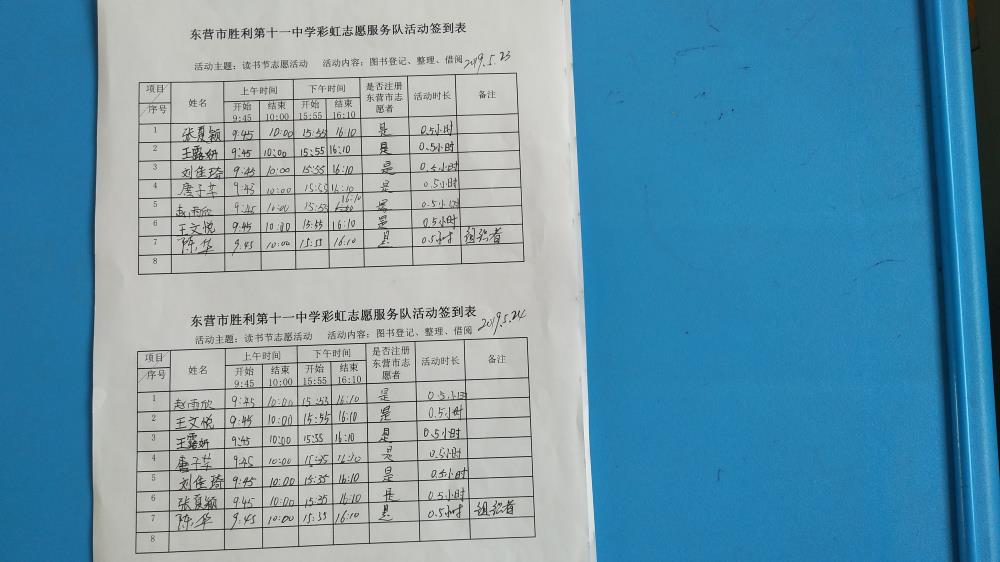 东营市胜利第十一中学彩虹志愿服务队活动签到表
活动主题：读书节志愿活动 活动内容：图书登记、整理、借阅 2019.5.23
项目 序号 姓名 上午时间 下午时间 是否注册东营市志愿者 活动时长 备注
开始 9:45 结束 10:00 开始 15:55 结束 16:10
1 张夏颖 9:45 10:00 15:55 16:10 是 0.5小时
2 王露妍 9:45 10:00 15:55 16:10 是 0.5小时
3 刘佳琦 9:45 10:00 15:55 16:10 是 0.5小时
4 唐子苹 9:45 10:00 15:55 16:10 是 0.5小时
5 赵雨欣 9:45 10:00 15:55 16:10 是 0.5小时
6 王文悦 9:45 10:00 15:55 16:10 是 0.5小时
7 陈华 9:45 10:00 15:55 16:10 是 0.5小时 组织者
8
东营市胜利第十一中学彩虹志愿服务队活动签到表
活动主题：读书节志愿活动 活动内容：图书登记、整理、借阅 2019.5.24
项目 序号 姓名 上午时间 下午时间 是否注册东营市志愿者 活动时长 备注
开始 9:45 结束 10:00 开始 15:55 结束 16:10
1 赵雨欣 9:45 10:00 15:55 16:10 是 0.5小时
2 王文悦 9:45 10:00 15:55 16:10 是 0.5小时
3 王露妍 9:45 10:00 15:55 16:10 是 0.5小时
4 唐子苹 9:45 10:00 15:55 16:10 是 0.5小时
5 刘佳琦 9:45 10:00 15:35 16:10 是 0.5小时
6 张夏颖 9:45 10:00 15:35 16:10 是 0.5小时
7 陈华 9:45 10:00 15:55 16:10 是 0.5小时 组织者
8